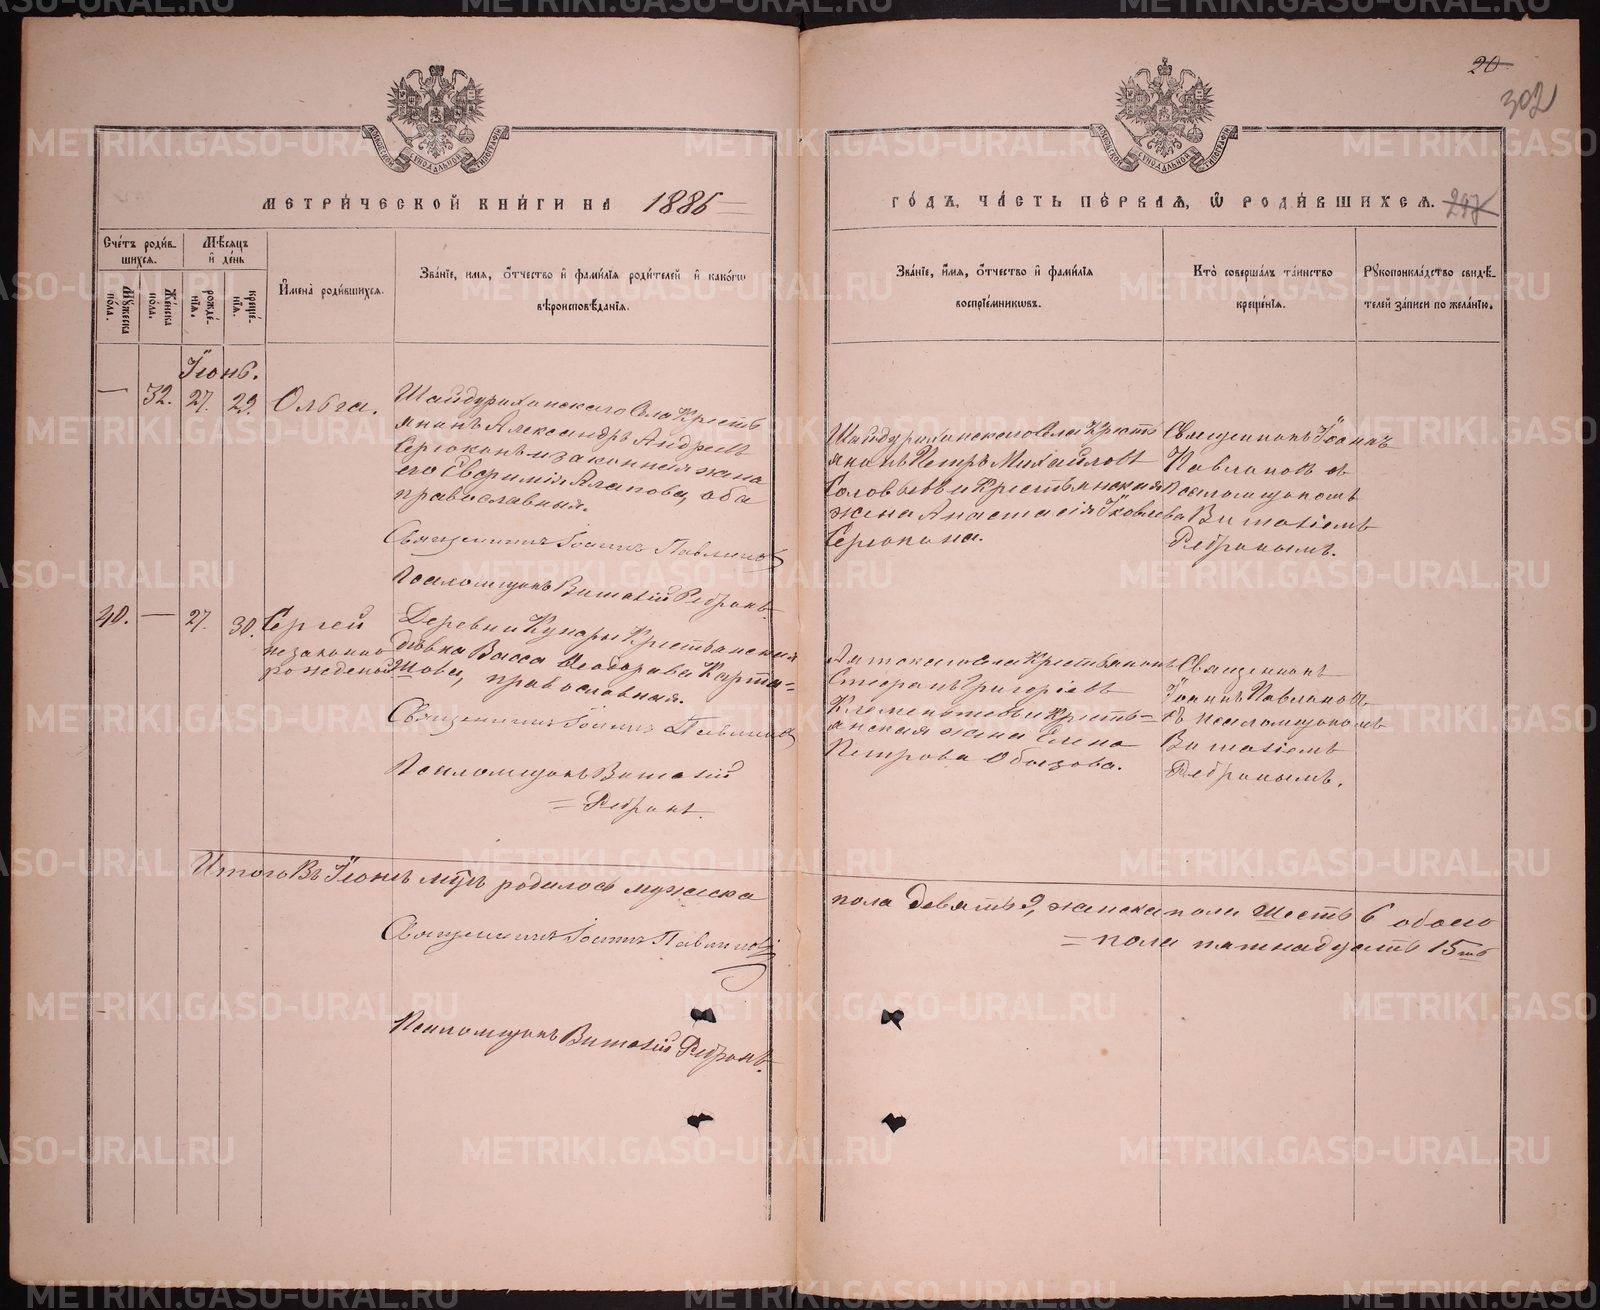 20
302
МЕТРИ́ЧЕСКОЙ КНИ́ГИ НА 1886
ГО́ДЪ, ЧА́СТЬ ПЕ́РВАЯ, Ѡ РОДИ́ВШИХСЯ. 297
Сче́тъ роди́вшихся.
Мѣ́сяцъ и де́нь
Му́жеска по́ла.
Же́нска по́ла.
рожде́нїя.
креще́нїя.
И҆мена̀ роди́вшихся.
Зва́нїе, и́мя, ѻ҆́тчество и҆ фами́лїя роди́телей и҆ како́гѡ
вѣроисповѣ́данїя.
Зва́нїе, и́мя, ѻ҆́тчество и҆ фами́лїя
воспрїе́мникѡвъ.
Кто̀ соверша́лъ та́инство
креще́нїя.
Рꙋкоприкла́дство свидѣ́-
телей за́писи по жела́нїю.
Іюнь.
— 32. 27. 29. Ольга.
Шайдурихинскаго Села Кресть
янинъ Александръ Андреевъ
Серюковъ и законная жена
его Евфимія Агапова, оба
православныя.
Священникъ Іоаннъ Павлиновъ
Псаломщикъ Виталій Ребринъ
Шайдурихинскаго Села Кресть
янинъ Петръ Михайловъ
Соловьевъ и Крестьянская
жена Анастасія Яковлева
Серюкова.
Священникъ Іоаннъ
Павлиновъ съ
псаломщикомъ
Виталіемъ
Ребринымъ.
40. — 27. 30. Сергей
незаконно
рожденный
Деревни Кунары Крестьянская
дѣвка Васса Ѳеодорова Карта=
шова, православная.
Священникъ Іоаннъ Павлиновъ
Псаломщикъ Виталій
= Ребринъ.
Аятскаго Села Крестьянинъ
Стефанъ Григорьевъ
Клементьевъ и Кресть=
янская жена Елена
Петрова Обоезова.
Священникъ
Іоаннъ Павлиновъ
съ псаломщикомъ
Виталіемъ
Ребринымъ.
Итого въ Іюнѣ мцѣ родилось мужеска
пола девять 9, женска пола шесть 6 обоего
= пола пятнадцать 15ть
Священникъ Іоаннъ Павлиновъ
Псаломщикъ Виталій Ребринъ.
METRIKI.GASO-URAL.RU